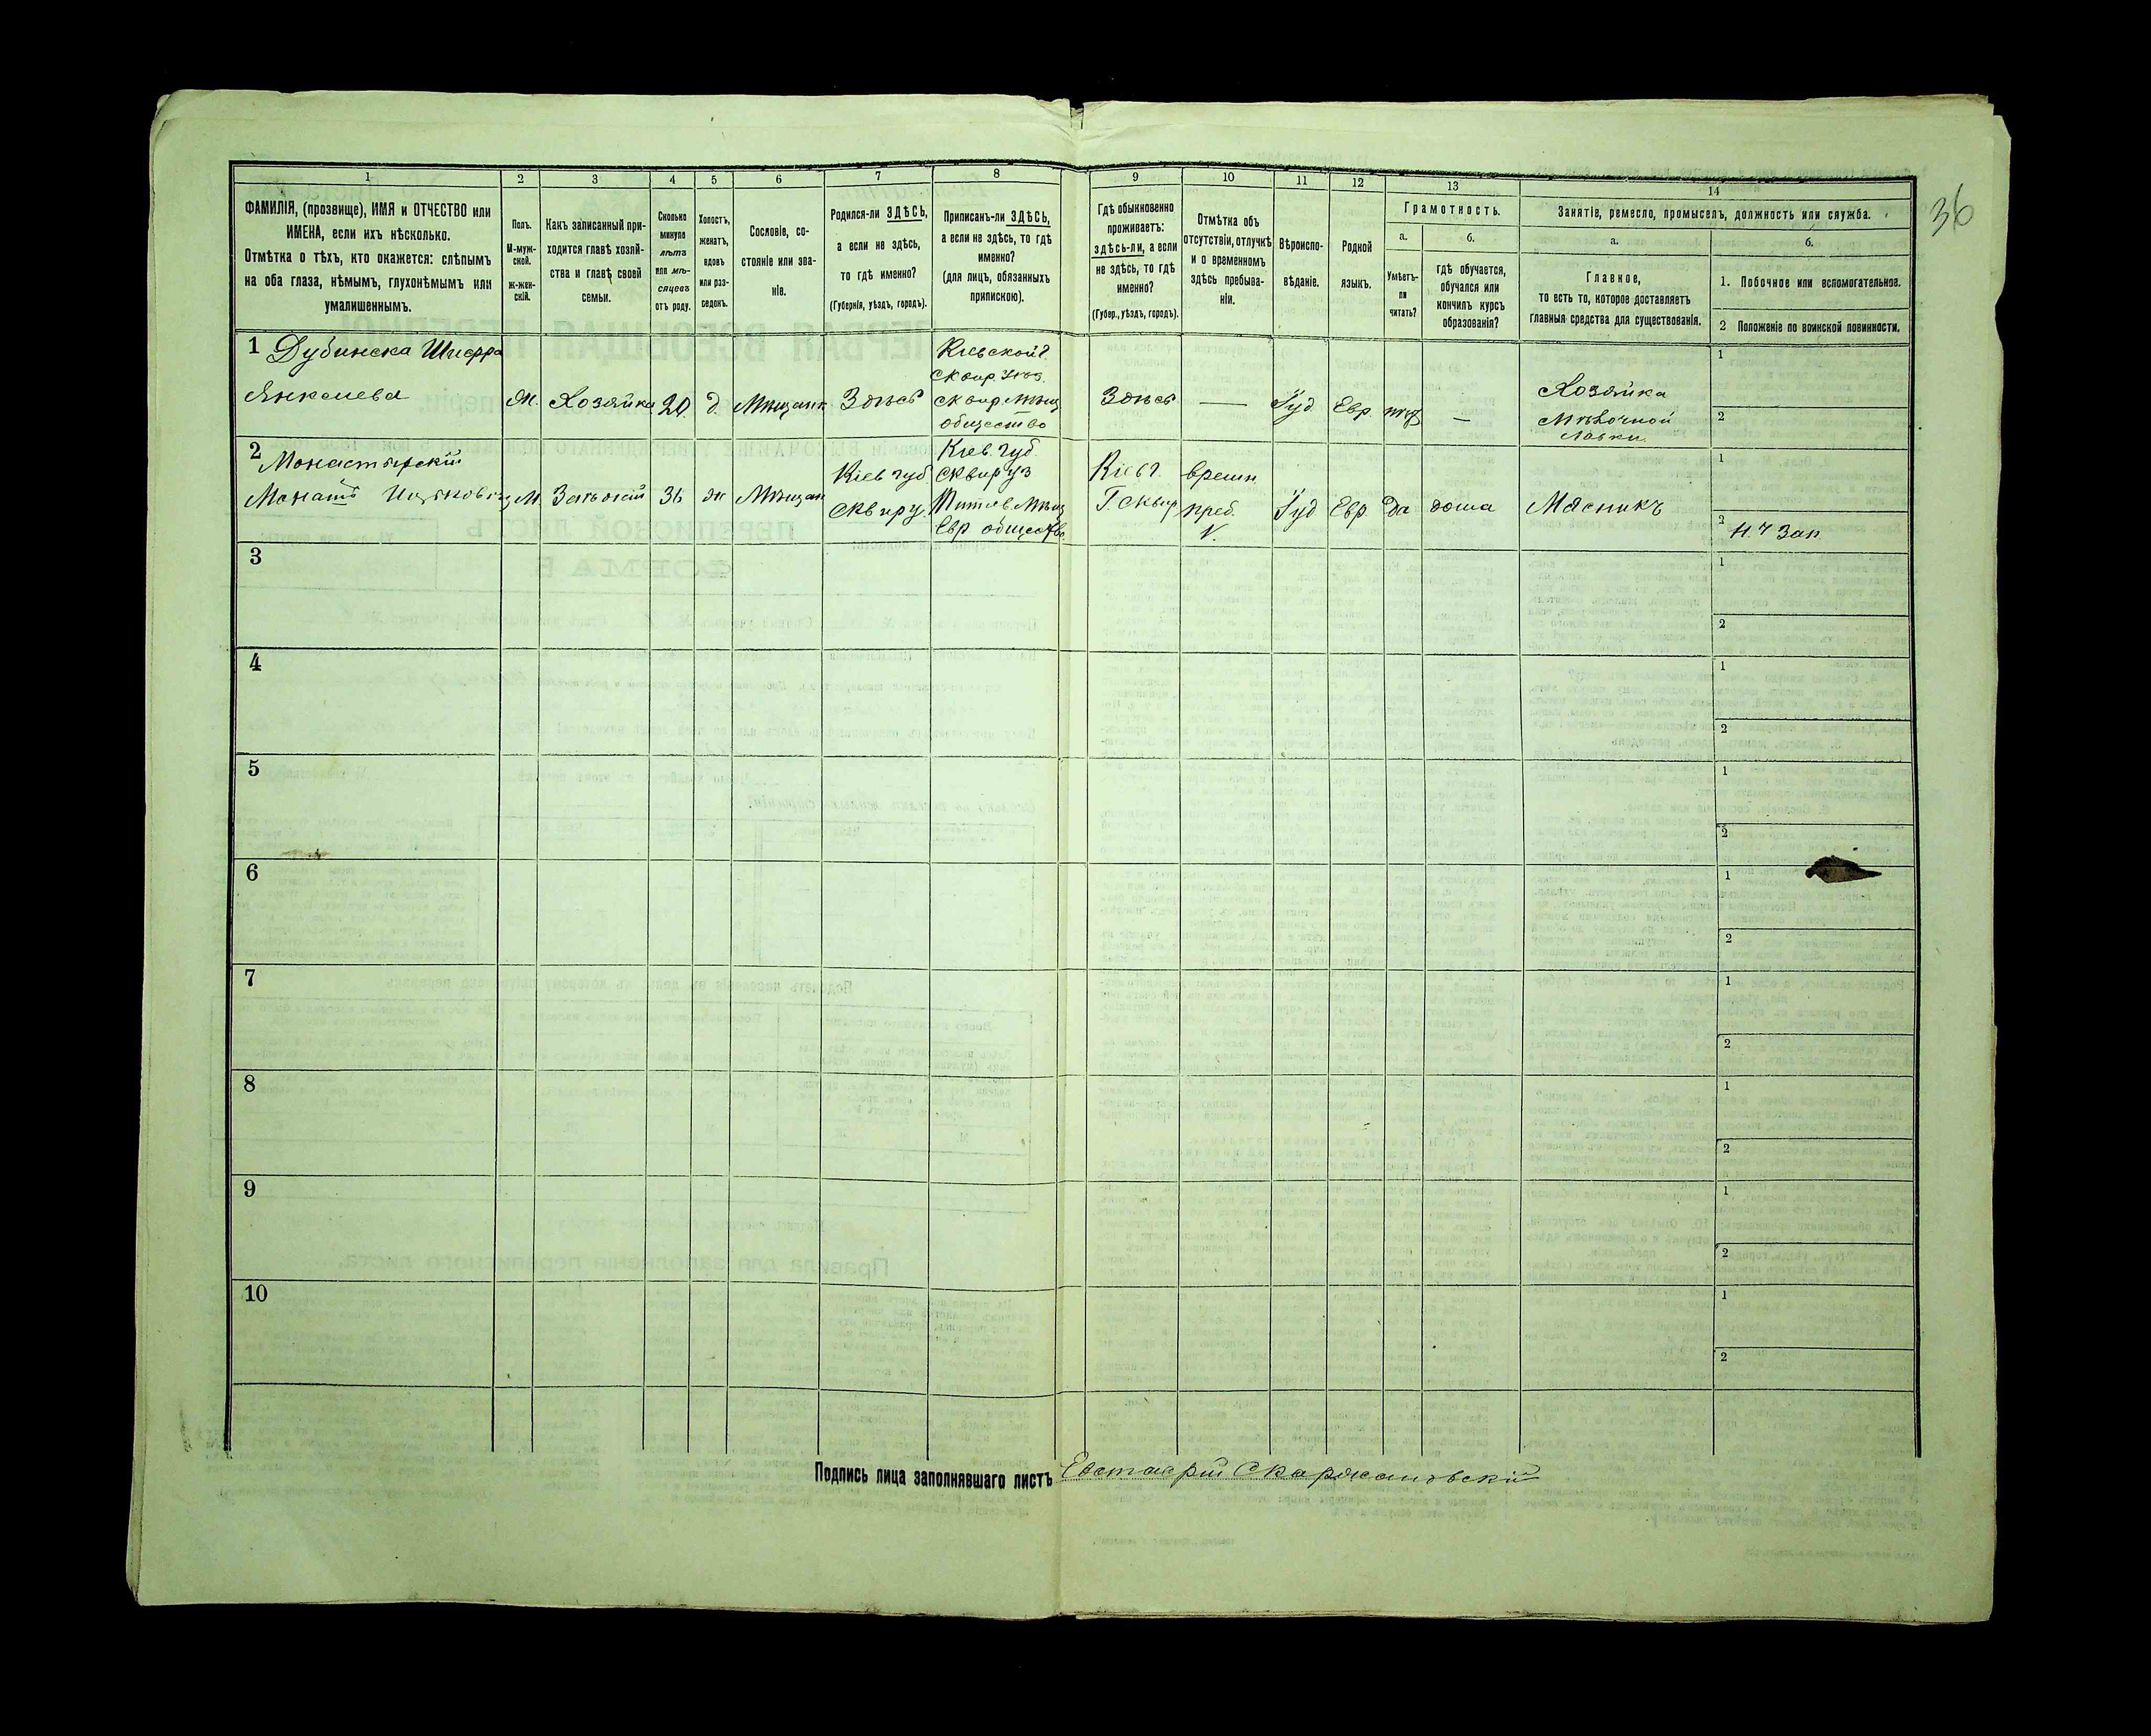 36
1 2 3 4 5 6 7 8 9 10 11 12 13 14
ФАМИЛІЯ, (прозвище), ИМЯ и ОТЧЕСТВО или
ИМЕНА, если ихъ нѣсколько.
Отмѣтка о тѣхъ, кто окажется: слѣпымъ
на оба глаза, нѣмымъ, глухонѣмымъ или
умалишеннымъ.
Полъ.
М-муж-
ской.
Ж-жен-
скій.
Какъ записанный при-
ходится главѣ хозяй-
ства и главѣ своей
семьи.
Сколько
минуло
лѣтъ
или мѣ-
сяцевъ
отъ роду.
Холостъ,
женатъ,
вдовъ
или раз-
веденъ.
Сословіе, со-
стояніе или зва-
ніе.
Родился-ли ЗДѢСЬ,
а если не здѣсь,
то гдѣ именно?
(Губернія, уѣздъ, городъ).
Приписанъ-ли ЗДѢСЬ,
а если не здѣсь, то гдѣ
именно?
(для лицъ, обязанныхъ
припискою).
Гдѣ обыкновенно
проживаетъ:
здѣсь-ли, а если
не здѣсь, то гдѣ
именно?
(Губер., уѣздъ, городъ).
Отмѣтка объ
отсутствіи, отлучкѣ
и о временномъ
здѣсь пребыва-
ніи.
Вѣроиспо-
вѣданіе.
Родной
языкъ.
Грамотность.
а.
Умѣетъ-
ли
читать?
б.
гдѣ обучается,
обучался или
кончилъ курсъ
образованія?
Занятіе, ремесло, промыселъ, должность или служба.
а.
Главное,
то есть то, которое доставляетъ
главныя средства для существованія.
б.
1. Побочное или вспомогательное.
2 Положеніе по воинской повинности.
1 Дубинска Шифра
Янкелева
Хозяйка
20
д.
Мѣщанк
Здѣсь
Кіевской г.
Сквир. уѣз.
Сквир. Мѣщ
общество
Здѣсь
—
Іуд
Евр.
—
Хозяйка
Мѣлочной
Лавки.
1
2
2 Монастырскій
М.
36
ж
Мѣщан
Кіев губ
Сквир у.
Кіев. губ.
Сквир уз
Мѣщ
Евр общество
Кіев г.
Г. Сквир
времен
преб.
V.
Іуд
Евр.
Да
дома
Мясникъ
1
2
Н. Ч Зап
3
1
2
4
1
2
5
1
2
6
1
2
7
1
2
8
1
2
9
1
2
10
1
2
Подпись лица заполнявшаго листъ Евстафій Скаржановскій